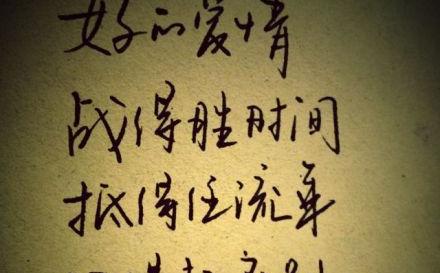 好的爱情
战得胜时间
抵得住流年